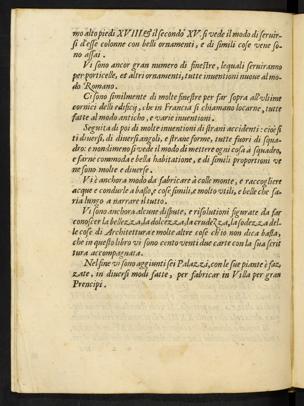 mo alto piedi XVIII. & il secondo XV. si vede il modo di seruir-
si d'esse colonne con belli ornamenti, e di simili cose vene so-
no assai.
Vi sono ancor gran numero di finestre, lequali seruiranno
per porticelle, et altri ornamenti, tutte inuentioni nuoue al mo-
do Romano.
Ci sono similmente di molte finestre per far sopra all'vltime
cornici delli edificij, che in Francia si chiamano lucarne, tutte
fatte al modo anticho, e varie inuentioni.
Seguita di poi di molte inuentioni di strani accidenti: cioè si
ti diuersi, di diuersi angoli, e strane forme, tutte fuori di squa-
dro: e nondimeno si vede il modo di mettere ogni cosa à squadro,
e farne commoda e bella habitatione, e di simili proportioni ve
ne sono molte e diuerse.
Vi è anchora modo da fabricare à colle monte, e raccogliere
acque e condurle à basso, e cose simili, e molto vtili, e belle che sa-
ria lungo a narrare il tutto.
Vi sono anchora alcune dispute, e risolutioni figurate da far
conoscer la bellezza, la dolcezza, la crudezza, la sodezza del-
le cose di Architettura e molte altre cose ch'io non dica basta,
che in questo libro vi sono cento venti due carte con la sua scrit
tura accompagnata.
Nel fine vi sono aggiunti sei Palazzi, con le sue piante è faz-
zate, in diuersi modi fatte, per fabricar in Villa per gran
Prencipi.